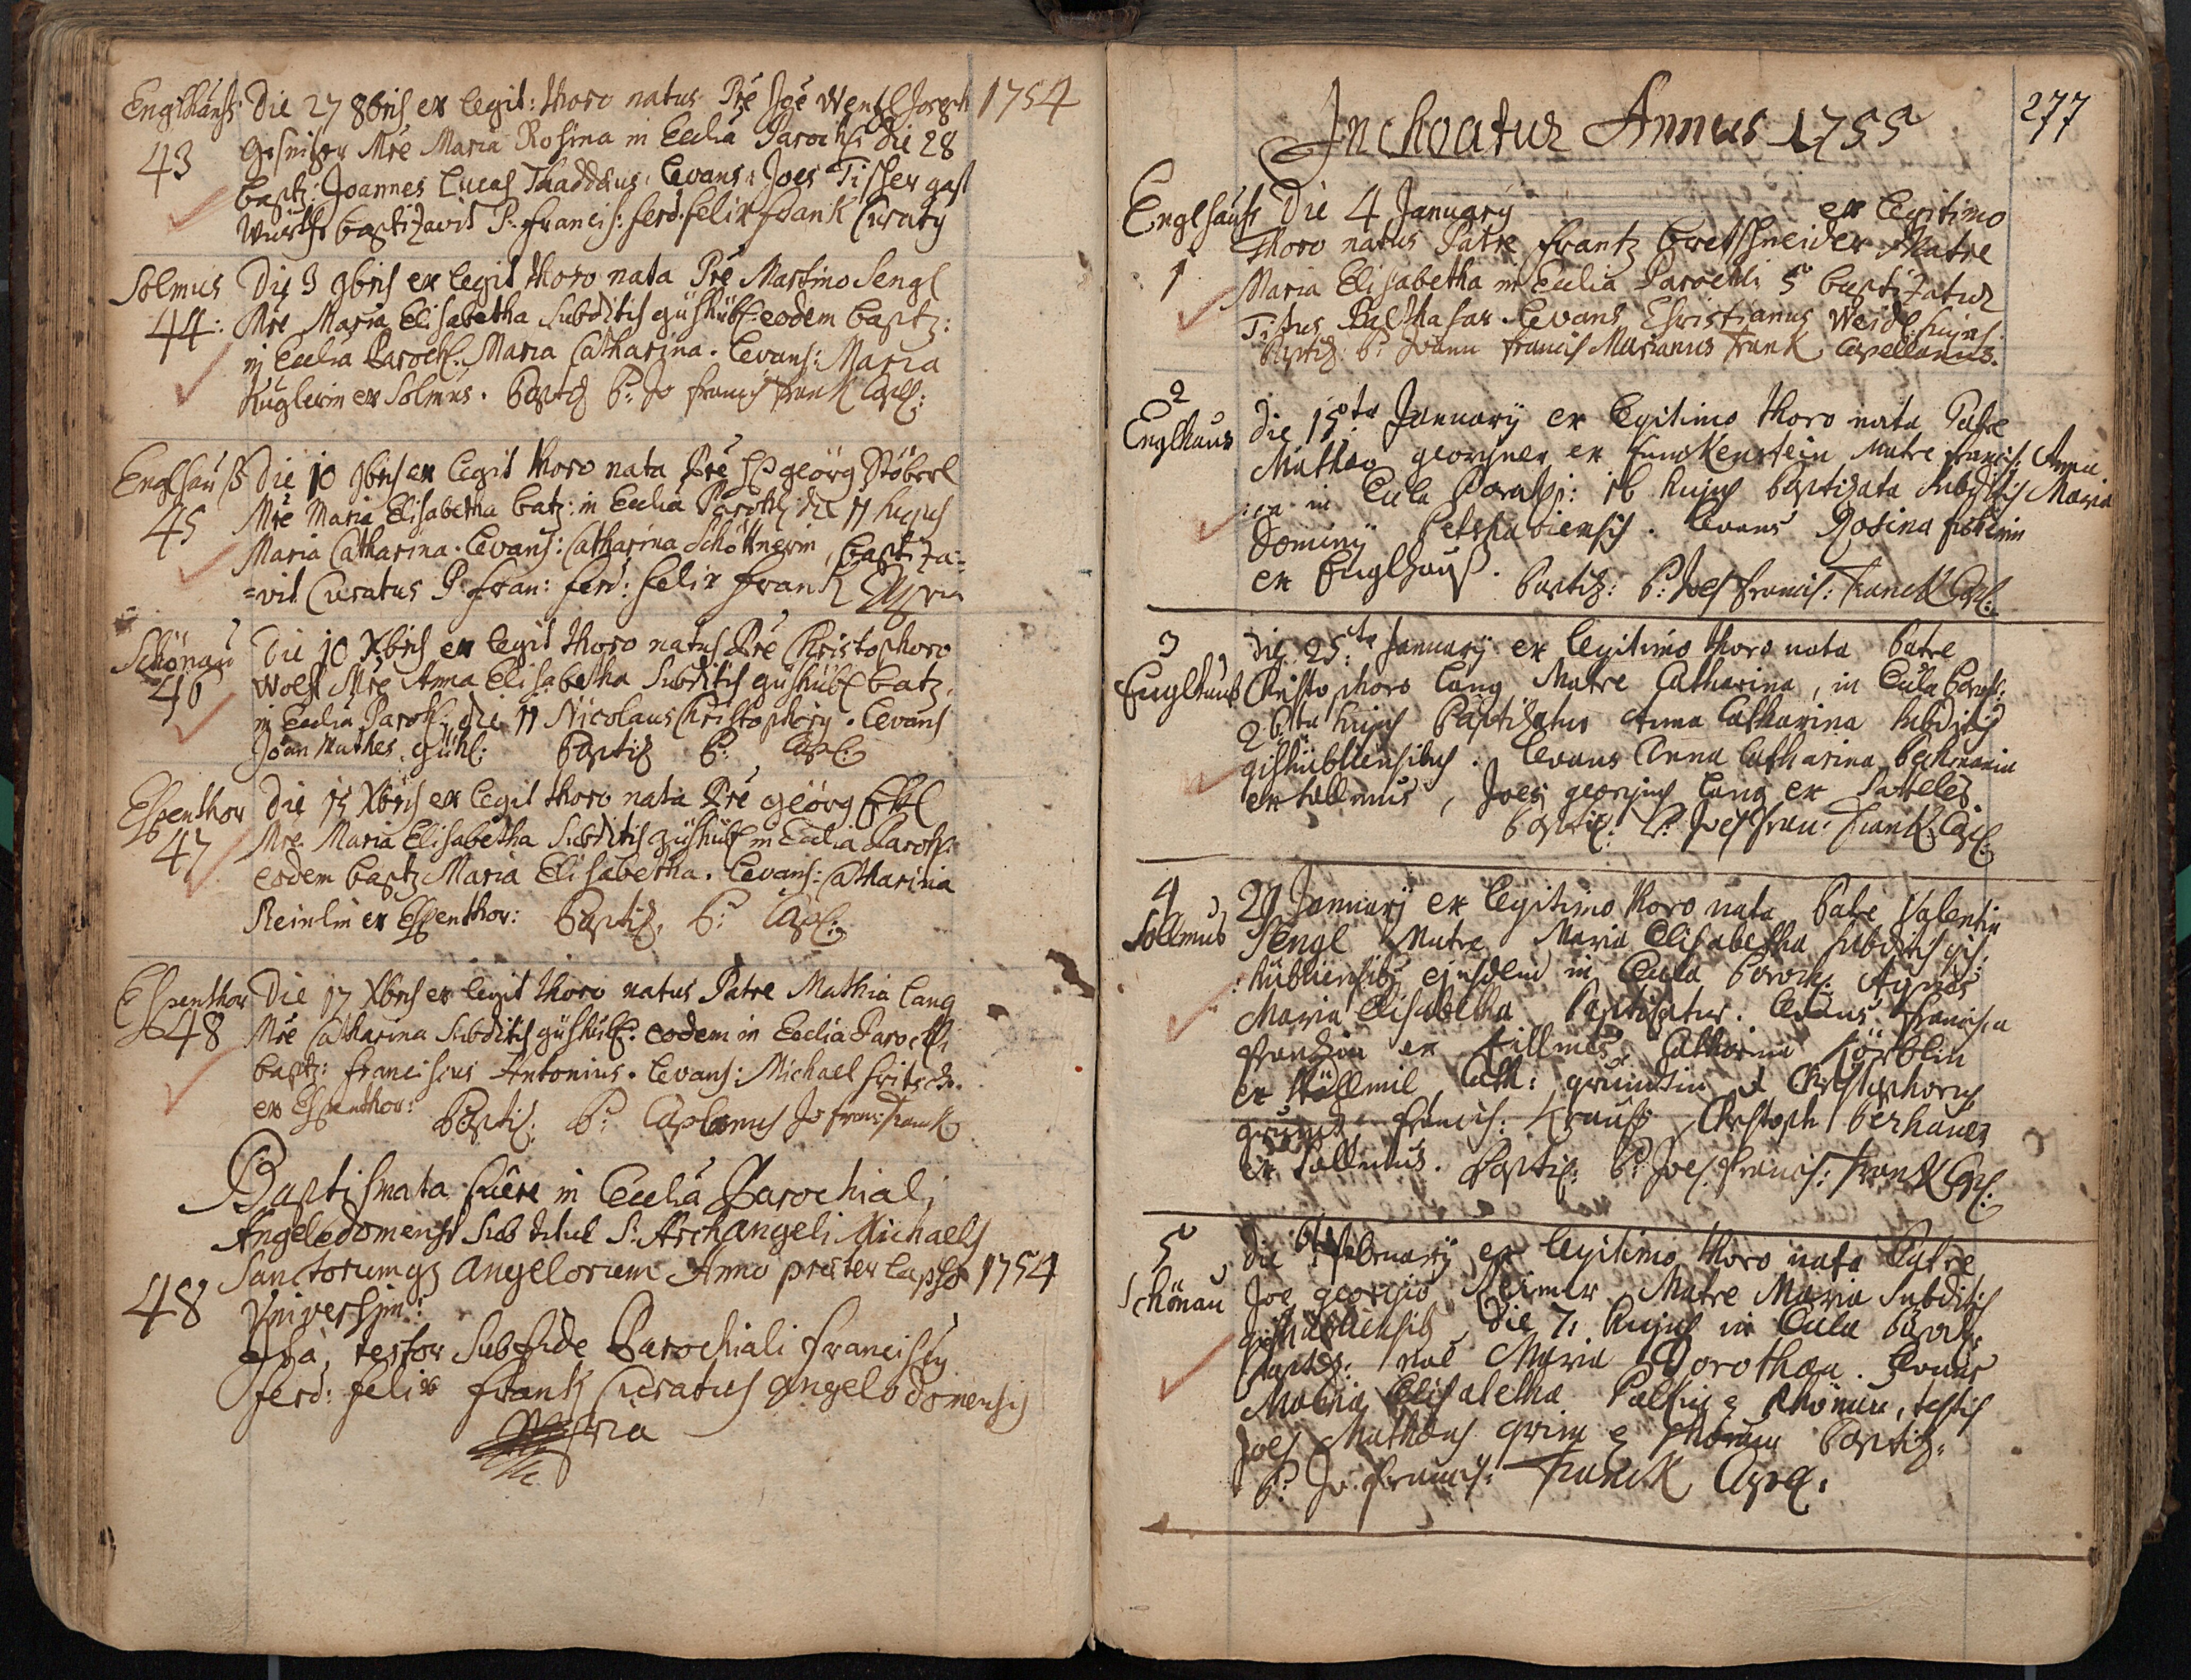 Englhauß Die 27 8bris ex legit: thoro natus Pre Joe Wentzl 1754
43 Mre Maria Rosina in Ecclia Paroch: die 28
baptz: Joannes Lucas Thaddæus. Levans: Joes Tischer gast
Würth baptizavit P: Francis: Ferd: Felix Frank Curatg
Solmus Die 3 9bris ex legit thoro nata Pre Martino Sengl
44: Mre Maria Elisabetha Subditis güshübl eodem baptz:
in Ecclia Paroch: Maria Catharina. Levans: Maria
Kuglerin ex Solmus. Baptiz P: Jo Francis Frank Capl:
Englhauß Die 10 9bris ex legit thoro nata Pre geörg Stöberl
45 Mre Maria Elisabetha batz: in Ecclia Paroch: die 11 hujus
Maria Catharina. Levans: Catharina Schöttnerin, baptiza=
=vit Curatus P: Fran: Ferd: Felix Frank
Schönau Die 10 Xbris ex legit thoro natus Pre Christophoro
46 Wolf Mre Anna Elisabetha Subditis güshübl batz.
in Ecclia Paroch: die 11 Nicolaus Christophorg. Levans
Joan Mathes Gühl: Baptiz P: Capl:
Espenthor Die 15 Xbris ex legit thoro nata Pre geörg
47 Mre Maria Elisabetha Subditis güshübl in Ecclia Paroch:
eodem baptz Maria Elisabetha. Levans: Catharina
Reinlin ex Espenthor: Baptiz. P: Capl:
Espenthor Die 17 Xbris ex legit thoro natus Patre Mathia Lang
48 Mre Catharina Subditis güshübl: eodem in Ecclia Paroch:
baptz: Franciscus Antonius. Levans: Michael Fritsch.
ex Espenthor: Baptiz: P: Caplanus Jo Franc: Frank
Baptismata fuere in Ecclia Parochiali
Angelodomensi Sub titul S: Archangeli Michaelis
Sanctorumqz Angelorum Anno præterlapso 1754
48 Universim:
Ita testor Sub fide Parochiali Franciscg
Ferd: Felix Frank Curatus Angelodomensis
277
Inchoatur Annus 1755
Englhauß Die 4 January ex legitimo
1 Thoro natus Patre Frantz Bretschneider Matre
Maria Elisabetha in Ecclia Parochli 5 baptizatur
Titus Balthasar. Levans Christianus Weidl hujas
Baptiz: P: Joann Francis Marianus Frank Capellanus.
2
Englhaus Die 15ta January ex legitimo thoro nata Patre
Matheo georgner ex Funckenstein Matre Francis: Anna
in Ecula Paroch: 16 hujus baptizata Subditis Maria
Dominy Petschaviensis. Levans Rosina
ex Englhauß. Baptiz: P: Joes Francis: Franck Capl:
3 Die 25ta January ex legitimo thoro nata Patre
Englhauß Christophoro Lang, Matre Catharina, in Ecula Paroch:
26ta hujus Baptizatur Anna Catharina Subditis
gishübliensibus. Levans Anna Catharina
ex Sollmus, Joes georgius Lang ex Satteles
Baptiz: P: Joes Fran: Frank Capl:
4 29 January ex legitimo thoro nata Patre Valentin
Sollmus Sengl Matre Maria Elisabetha Subditis gis
:hübliensibg ejusdem in Ecula Paroch: Agnes
Maria Elisabetha Baptizatur. Levans Francisca
ex Sollmus, Catharina
ex Cath: gründtin et Christophorus
Francis: Krauß, Christoph Berhauer
ex Sollmus. Baptiz: P: Joes Francis: Frank Capl:
5 Die 6ta February ex legitimo thoro nata Patre
Schönau Joe georgio Reimer Matre Maria Subditis
gishübliensibg Die 7. hujus in Ecula Paroch:
Baptiz: Maria Dorothea. Levans
Maria Elisabetha testis
Joes Mathæus Baptiz:
P: Jo Francis: Franck Capl: